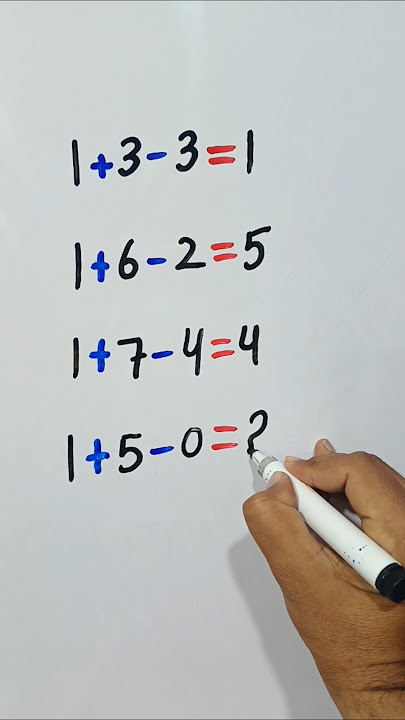 1+3-3=1
1+6-2=5
1+7-4=4
1+5-0=?